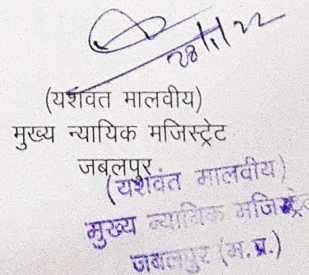 28/1/22
(यशवंत मालवीय)
मुख्य न्यायिक मजिस्ट्रेट
जबलपुर
(यशवंत मालवीय)
मुख्य न्यायिक मजिस्ट्रेट
जबलपुर (म.प्र.)